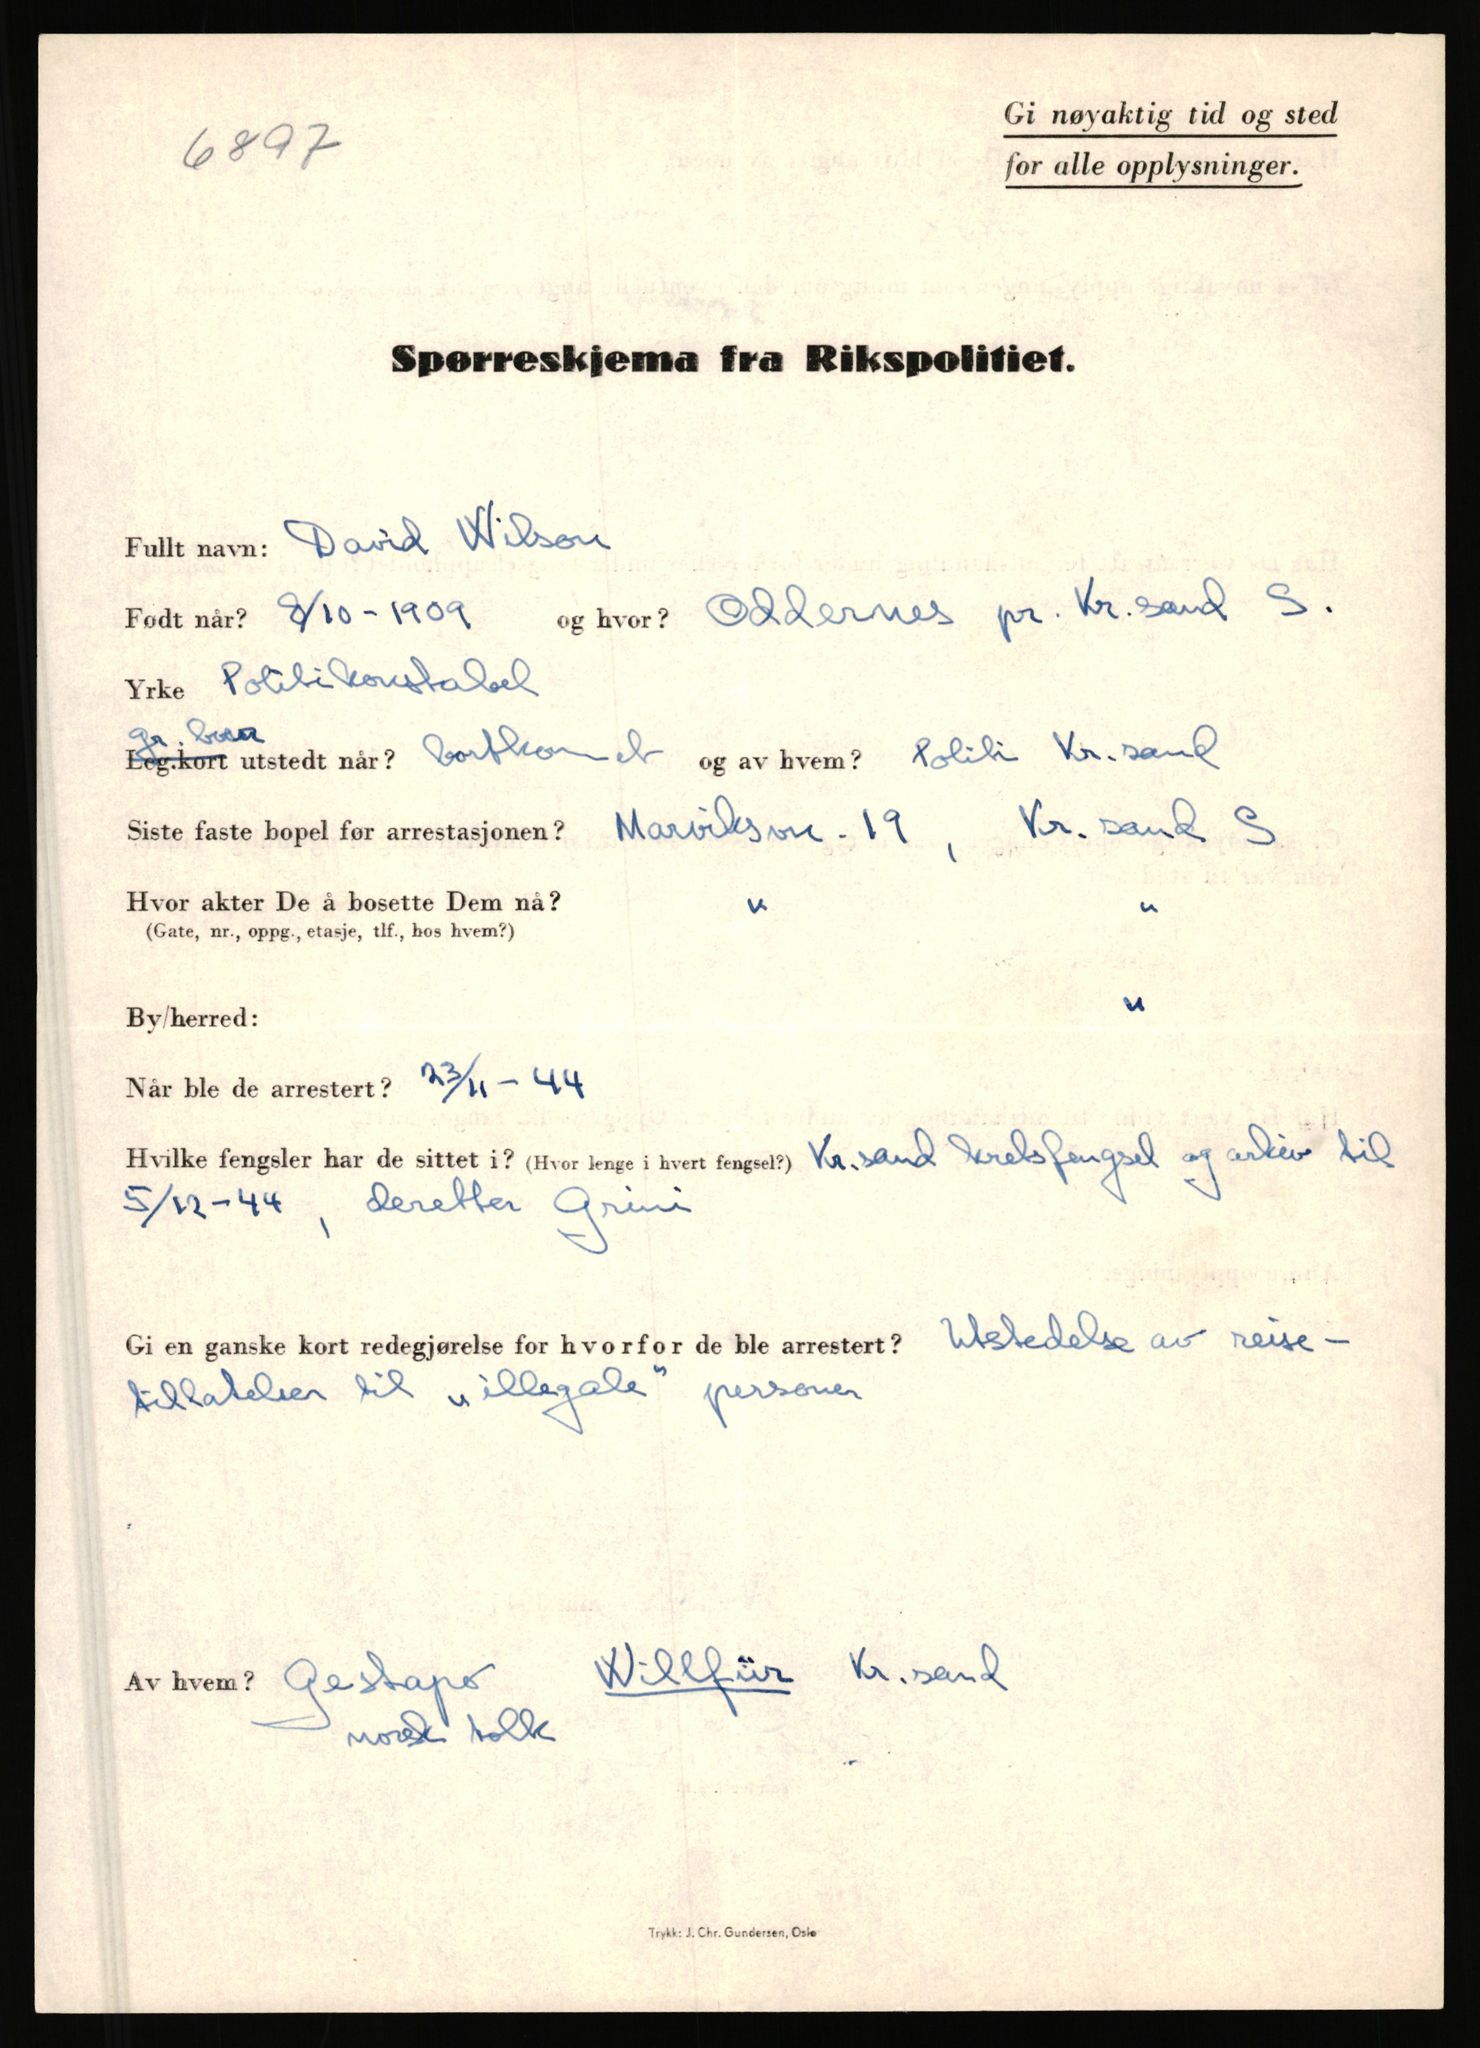 6897
Gi nøyaktig tid og sted
for alle opplysninger.
Spørreskjema fra Rikspolitiet.
Fullt navn: David Wilson
Født når? 8/10-1909 og hvor? Oddernes pr. Kr.sand S.
Yrke Politikonstabel
gr. boer
Leg.kort utstedt når? bortkomet og av hvem? Politi Kr.sand
Siste faste bopel før arrestasjonen? Marviksvn. 19, Kr.sand S
Hvor akter De å bosette Dem nå? " "
(Gate, nr., oppg., etasje, tlf., hos hvem?)
By/herred: "
Når ble de arrestert? 23/11-44
Hvilke fengsler har de sittet i? (Hvor lenge i hvert fengsel?) Kr.sand kretsfengsel og arkiv til
5/12-44, deretter Grini
Gi en ganske kort redegjørelse for hvorfor de ble arrestert? Utstedelse av reise-
tillatelser til „illegale" personer
Av hvem? Gestapo Willfür Kr.sand
norsk tolk
Trykk: J. Chr. Gundersen, Oslo